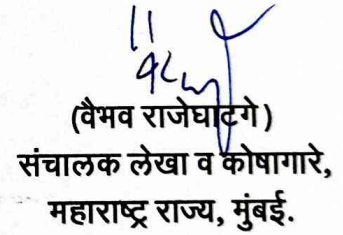 (वैभव राजेघाटगे)
संचालक लेखा व कोषागारे,
महाराष्ट्र राज्य, मुंबई.